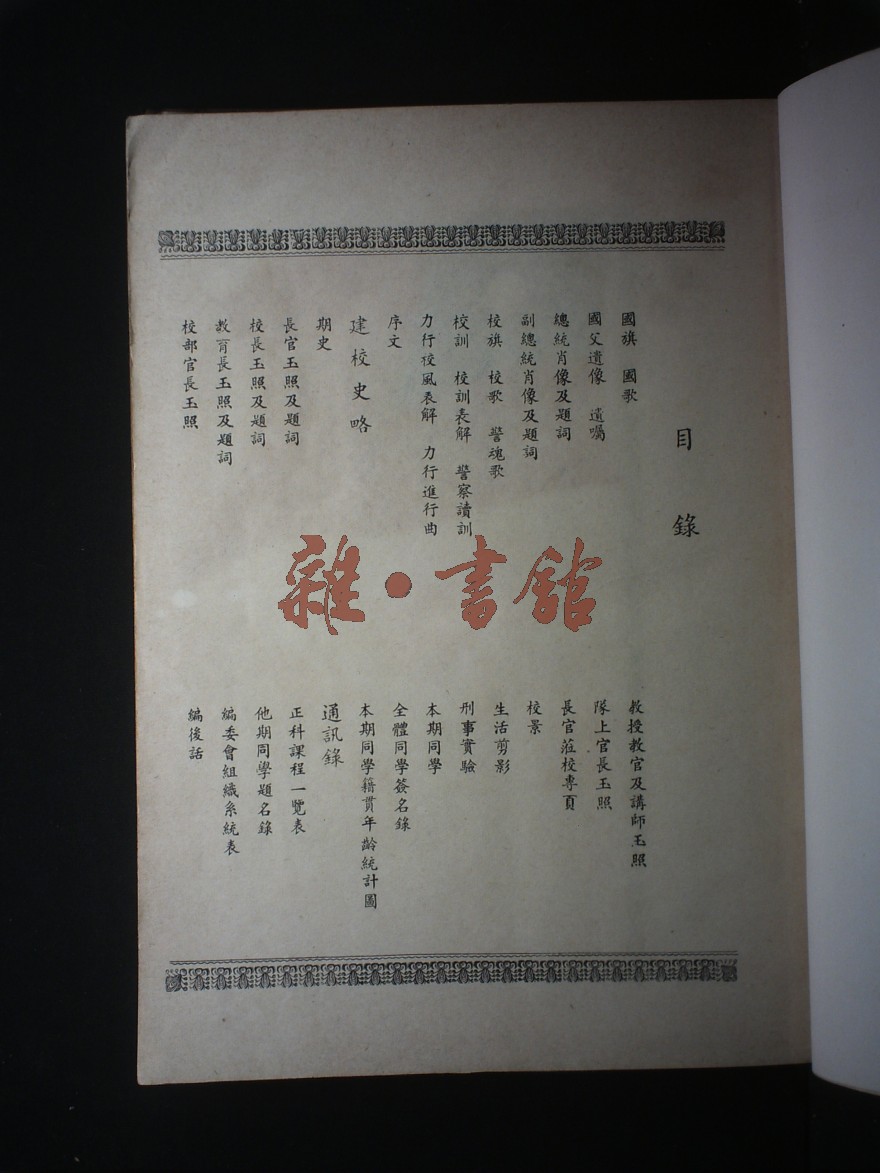 目錄
國旗　國歌
國父遺像　遺囑
總統肖像及題詞
副總統肖像及題詞
校旗　校歌　警魂歌
校訓　校訓表解　警察讀訓
力行校風表解　力行進行曲
序文
建校史略
期史
長官玉照及題詞
校長玉照及題詞
教育長玉照及題詞
校部官長玉照
教授教官及講師玉照
隊上官長玉照
長官蒞校專頁
校景
生活剪影
刑事實驗
本期同學
全體同學簽名錄
本期同學籍貫年齡統計圖
通訊錄
正科課程一覽表
他期同學題名錄
編委會組織系統表
編後話
雜·書館